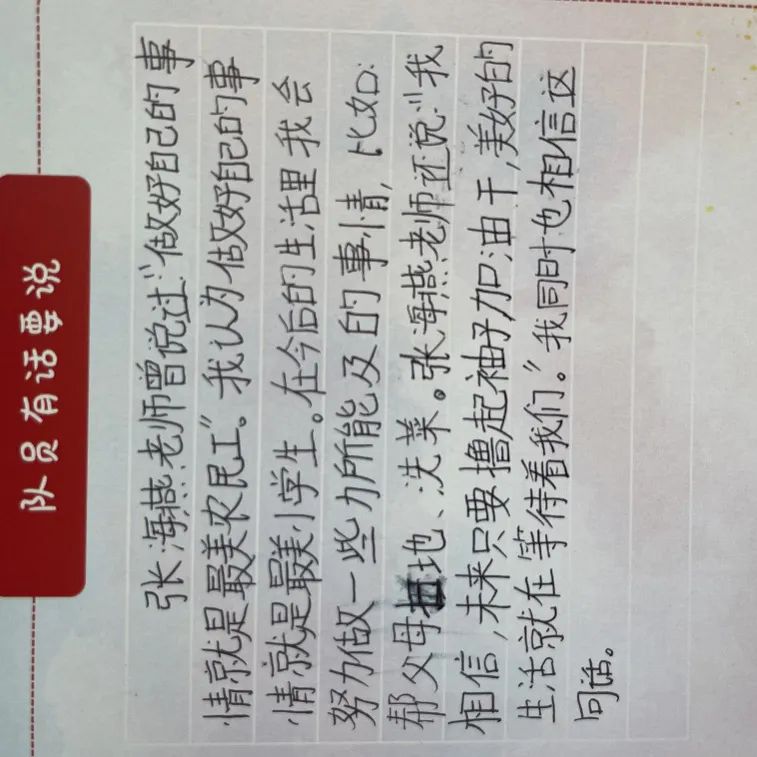 队员有话要说
张海燕老师曾说过:“做好自己的事
情就是最美农民工”。我认为做好自己的事
情就是最美小学生。在今后的生活里我会
努力做一些力所能及的事情,比如:
帮父母地、洗菜。张海燕老师还说:“我
相信,未来只要撸起袖子加油干,美好的
生活就在等待着我们。”我同时也相信这
句话。